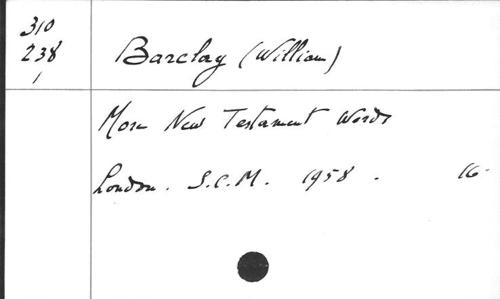 310
238
1
Barclay (William)
More New Testament Words
London. S.C.M. 1958. 16-